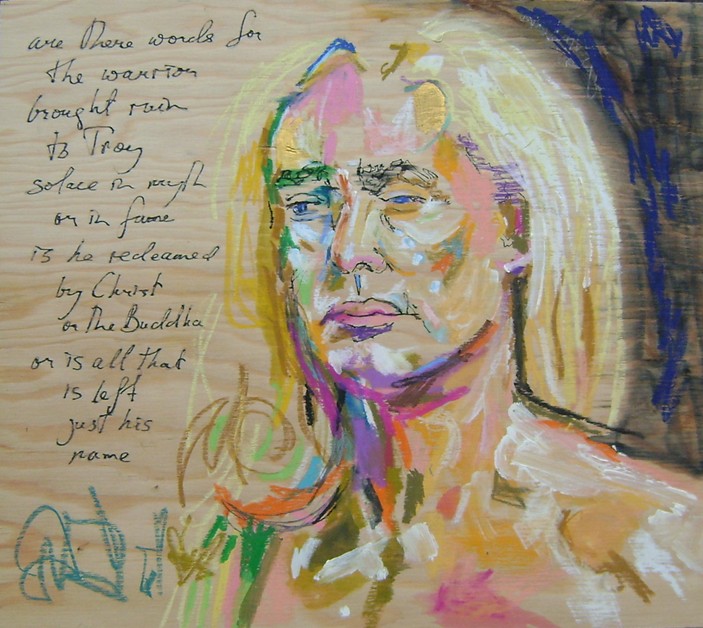 are there words for
the warrior
brought ruin
to Troy
solace in myth
or in fame
is he redeamed
by Christ
or the Buddha
or is all that
is left
just his
name